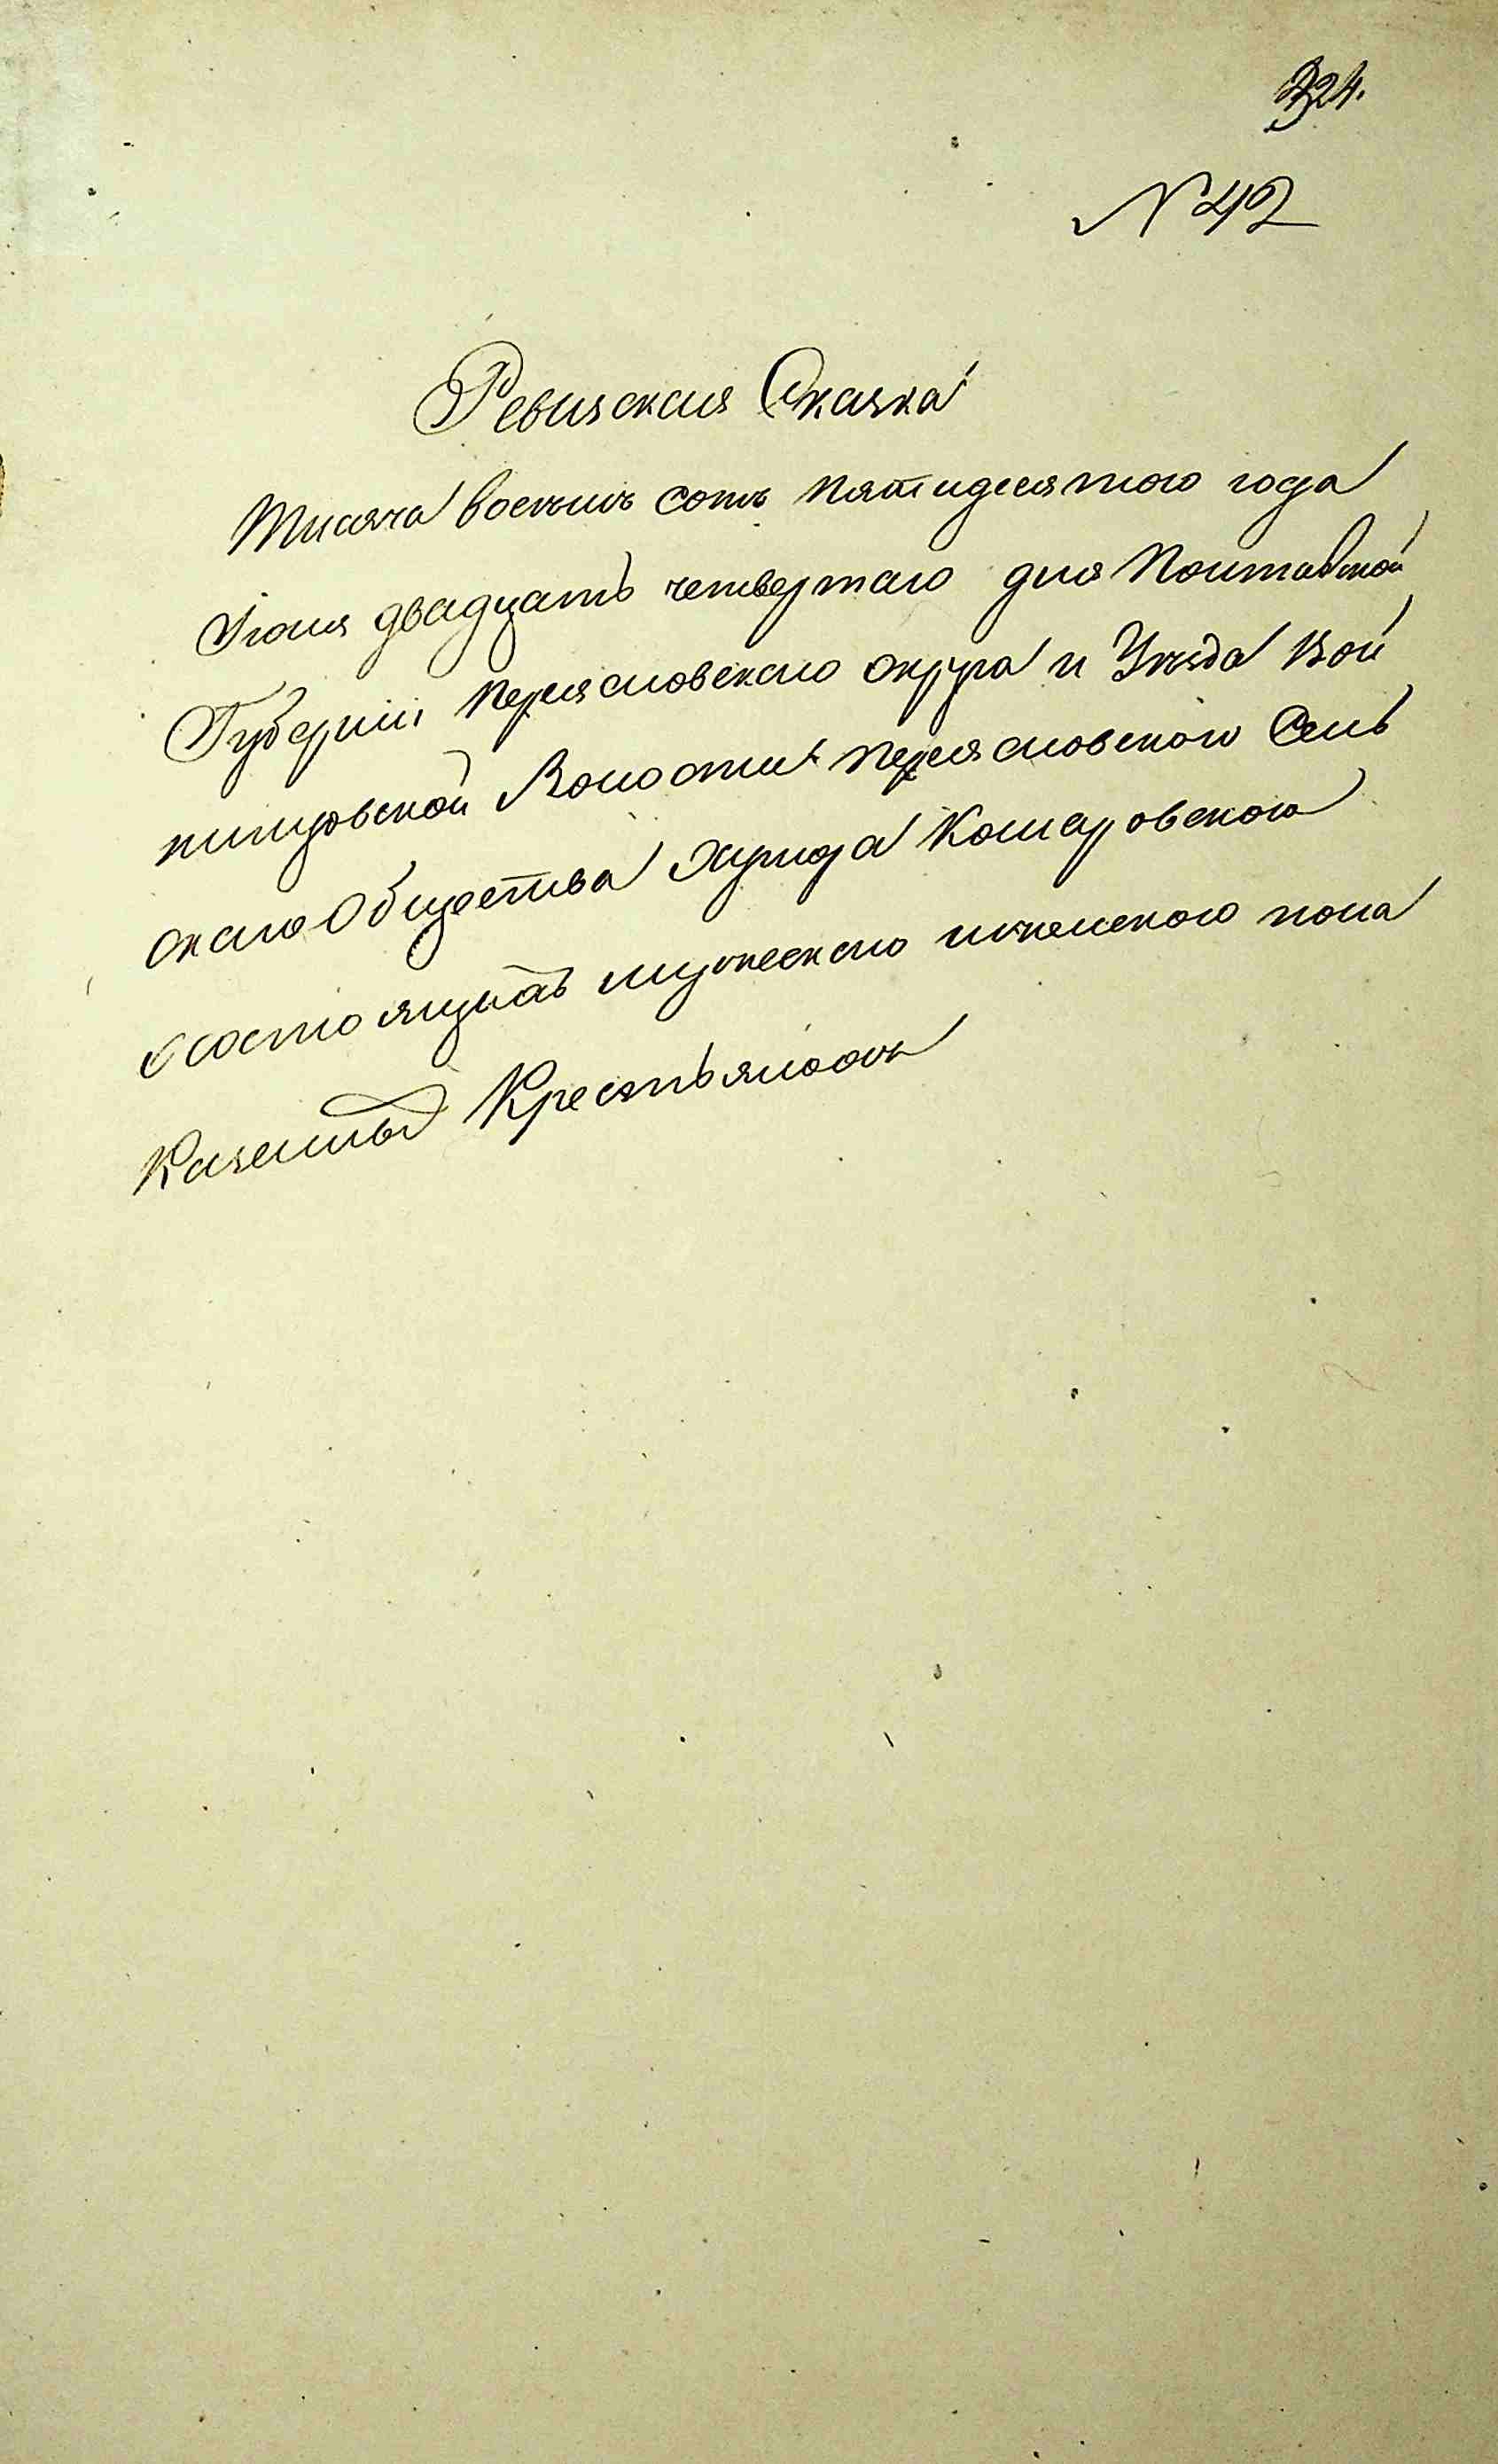 324.
N 42
Ревизская Сказка
Тисяча восемь сотъ пятидесятого года
Iюня двадцать четвертаго дня Полтавской
Губернiи Переясловскаго округа и Уѣзда Вой
ницовской Волости Переясловского Сель
скаго Общества Хутора Комаровского
о состоящихъ мужескаго и женского пола
Казенныхъ Крестьянохъ